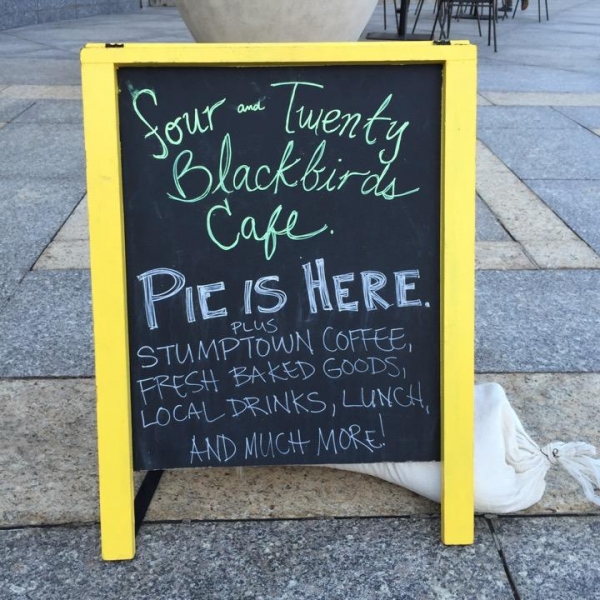 Four and Twenty
Blackbirds
Cafe.
PIE IS HERE.
PLUS
STUMPTOWN COFFEE,
FRESH BAKED GOODS,
LOCAL DRINKS, LUNCH,
AND MUCH MORE!